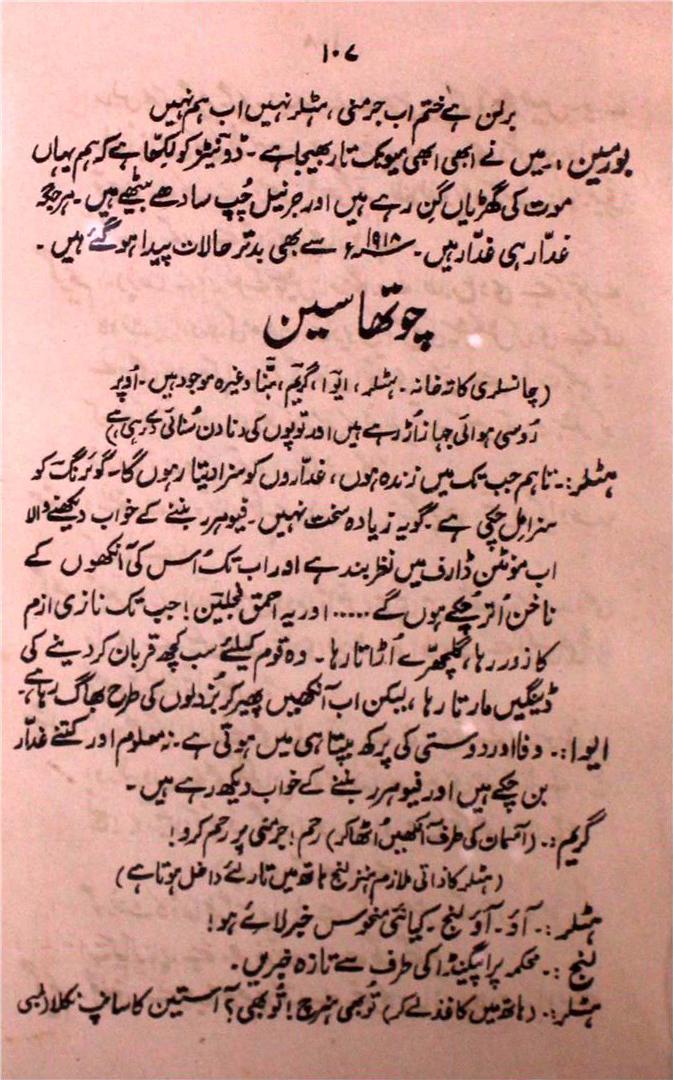 ۱۰۷
برلن ہے ختم اب جرمنی، ہٹلر نہیں اب ہم نہیں
بورمین:۔ میں نے ابھی ابھی میونک تار بھیجا ہے۔ ڈوئنیٹز کو لکھا ہے کہ ہم یہاں
موت کی گھڑیاں گن رہے ہیں اور جرنیل چُپ سادھے بیٹھے ہیں۔ ہر جگہ
غدّار ہی غدّار ہیں۔ ۱۹۱۸ء سے بھی بدتر حالات پیدا ہو گئے ہیں۔
چوتھا سین
(چانسلری کا تہ خانہ۔ ہٹلر، ایوا، گریم، ہنّا وغیرہ موجود ہیں۔ اُوپر
رُوسی ہوائی جہاز اُڑ رہے ہیں اور توپوں کی دنادن سُنائی دے رہی ہے)
ہٹلر:۔ تاہم جب تک میں زندہ ہوں، غدّاروں کو سزا دیتا رہوں گا۔ گوئرنگ کو
سزا مل چکی ہے۔ گو یہ زیادہ سخت نہیں۔ فیوہرر بننے کے خواب دیکھنے والا
اب مونٹن ڈارف میں نظر بند ہے اور اب تک اُس کی آنکھوں کے
ناخن اُتر چکے ہوں گے ..... اور یہ احمق فجلین! جب تک نازی ازم
کا زور رہا، گلچھرّے اُڑاتا رہا۔ وہ قوم کیلئے سب کچھ قربان کر دینے کی
ڈینگیں مارتا رہا، لیکن اب آنکھیں پھیر کر بُزدلوں کی طرح بھاگ رہا ہے۔
ایوا:۔ وفا اور دوستی کی پرکھ بپتا ہی میں ہوتی ہے۔ نہ معلوم اور کتنے غدّار
بن چکے ہیں اور فیوہرر بننے کے خواب دیکھ رہے ہیں۔
گریم:۔ (آسمان کی طرف آنکھیں اُٹھا کر) رحم! جرمنی پر رحم کرو!
(ہٹلر کا ذاتی ملازم ہنز لنج ہاتھ میں تار لئے داخل ہوتا ہے)
ہٹلر:۔ آؤ۔ آؤ لنج۔ کیا نئی منحوس خبر لائے ہو!
لنج:۔ محکمہ پراپیگنڈا کی طرف سے تازہ خبریں۔
ہٹلر:۔ (ہاتھ میں کاغذ لے کر) تُو بھی ہنرچ! تُو بھی؟ آستین کا سانپ نکلا